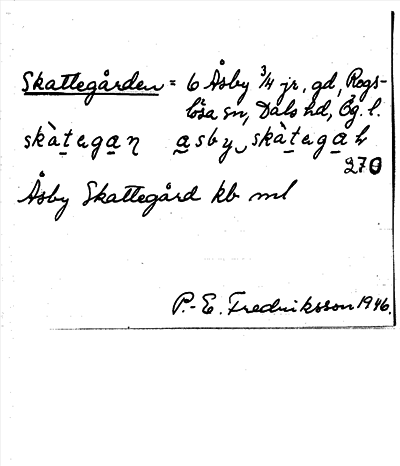 Skattegården = 6 Åsby 3/4 jr, gd, Rogs-
lösa sn, Dals hd, Ög. l.
skàtegan asby skàtegah
270
Åsby Skattegård kb ml
P.-E. Fredriksson 1946.